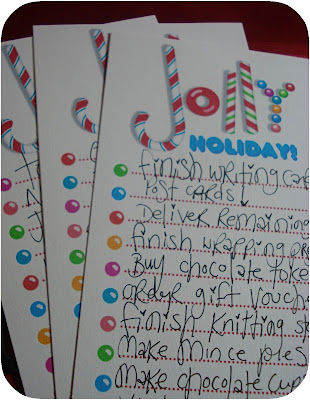 Jolly
HOLIDAY!
finish writing
Post cards
Deliver remaining
finish wrapping
Buy chocolate
order gift
finish knitting
Make mince pies
Make chocolate